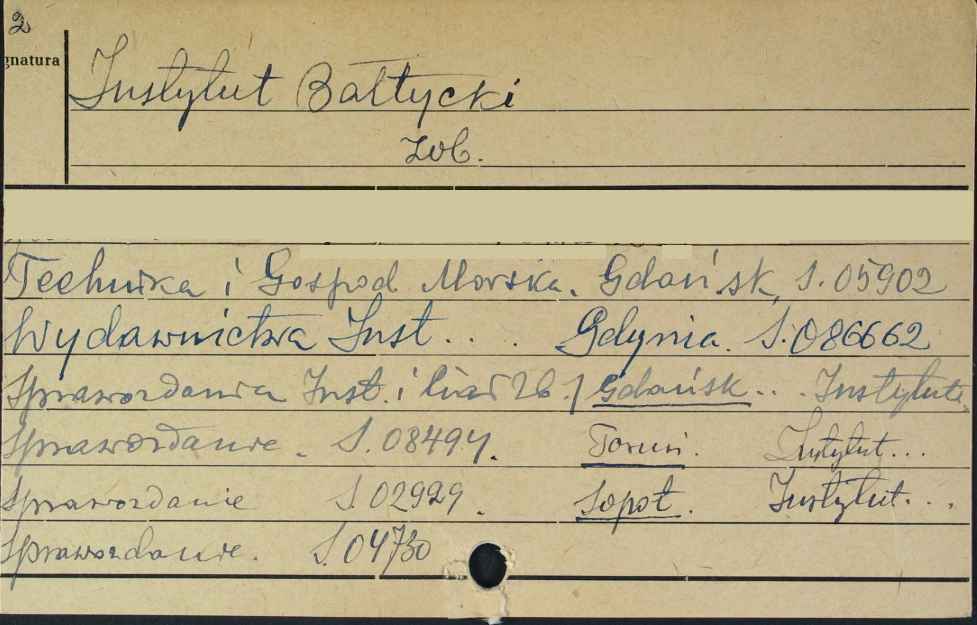 2
gnatura
Instytut Bałtycki
zob.
Technika i Gospod Morska. Gdańsk, S. 05902
Wydawnictwa Inst... Gdynia. S. 086662
Sprawozdania Inst. i Gdańsk... Instytut
Sprawozdanie. S. 08494. Toruń. Instytut...
Sprawozdanie S 02929. Sopot. Instytut...
Sprawozdanie. S. 04730